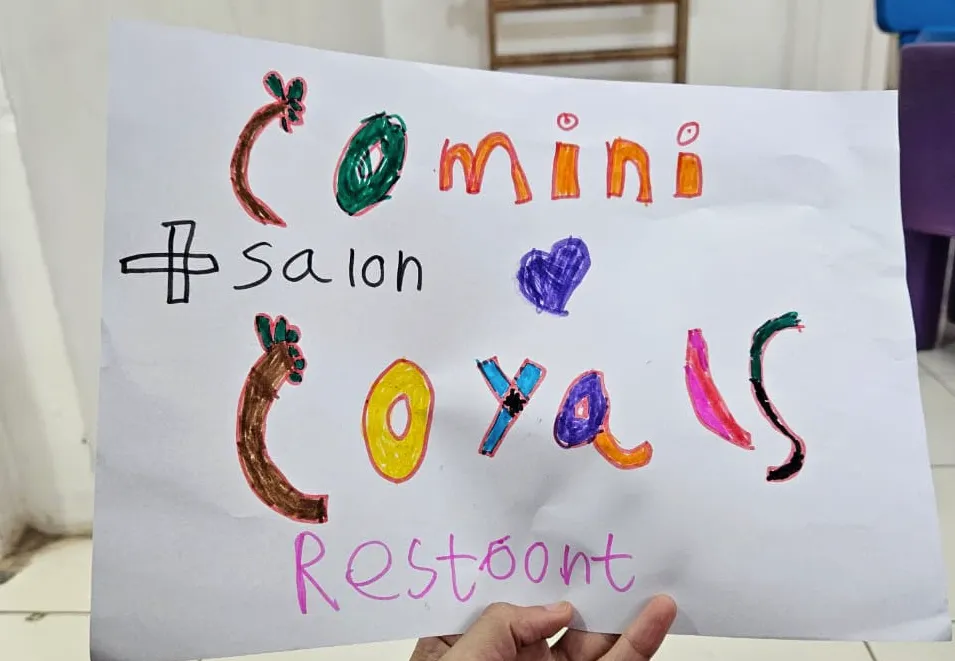 Comini
+ salon
Coyals
Restoont